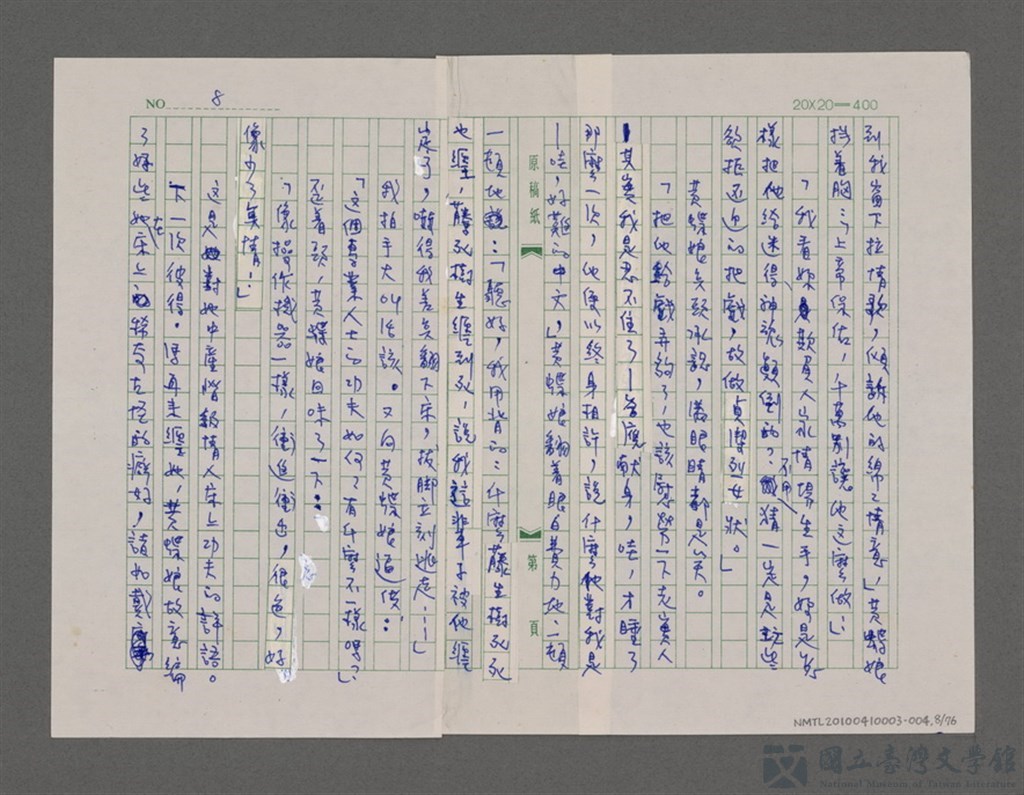 NO 8
20X20=400
到我當下拉情歌,傾訴他的綿綿情意」黃蝶娘
拊着胸:「上帝保佑,千萬別讓他這麼做!」
「我看妳欺負人家情場生手,妳是怎
樣把他給迷得神魂顛倒的?不用猜一定是玩些
欲拒還迎的把戲,故做貞潔烈女狀。」
黃蝶娘點頭承認,滿眼睛都是笑。
「把他給戲弄夠了,也該慰勞一下老實人
其實我是忍不住了——當應獻身,哇,才睡了
那麼一次,他便以終身相許,說什麼他對我是
——哇,好難的中文,」黃蝶娘翻着眼白費力地一頓
一頓地說:「聽好,我用背的:什麼藤生樹死死
也纏,藤死樹生纏到死,說我這輩子被他纏
定了,嚇得我差點翻下床,拔腳立刻逃走——」
我拍手大叫活該。又向黃蝶娘逼供:
「這個專業人士的功夫如何?有什麼不一樣嗎?」
歪着頭,黃蝶娘回味了一下:
「像操作機器一樣,衝進衝出,很色,好
像少了點情!」
這是她對她中產階級情人床上功夫的評語。
下一次彼得·傅再來纏她,黃蝶娘故意編
了好些她在床上的稀奇古怪的癖好,諸如戴
原稿紙
第 頁
NMTL20100410003-004,8/76
國立臺灣文學館
National Museum of Taiwan Literature